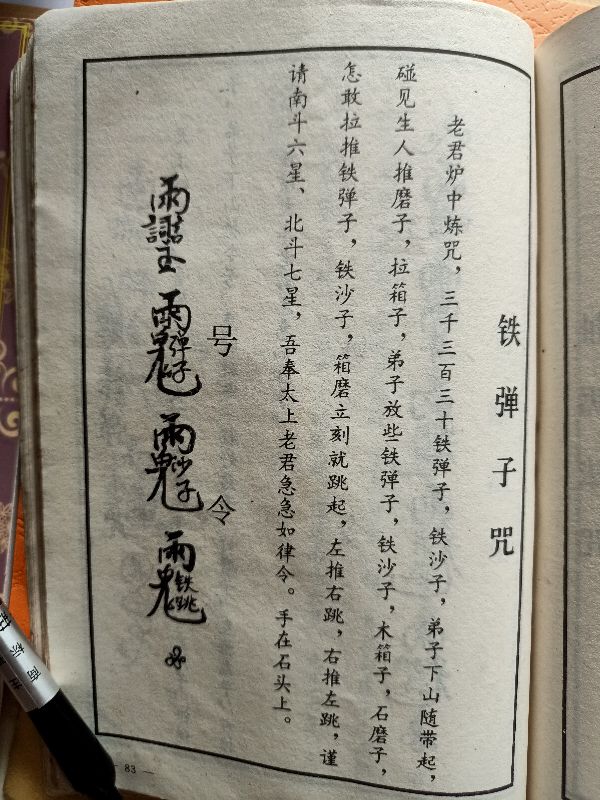 铁弹子咒
老君炉中炼咒，三千三百三十铁弹子，铁沙子，弟子下山随带起，
碰见生人推磨子，拉箱子，弟子放些铁弹子，铁沙子，木箱子，石磨子，
怎敢拉推铁弹子，铁沙子，箱磨立刻就跳起，左推右跳，右推左跳，谨
请南斗六星、北斗七星，吾奉太上老君急急如律令。手在石头上。
号令
— 83 —